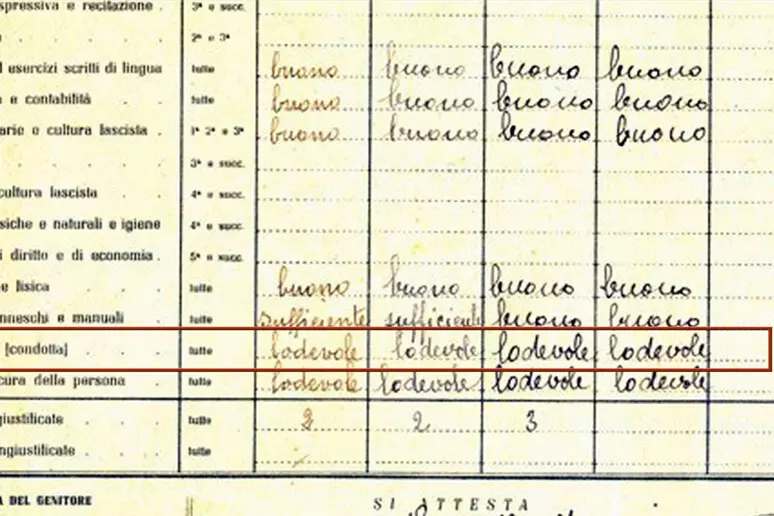 spressiva e recitazione . 3ª e succ.
. 2ª e 3ª
d esercizi scritti di lingua tutte buono buono buono buono
o e contabilità . . tutte buono buono buono buono
arie e cultura fascista . 1ª 2ª e 3ª buono buono buono buono
. . . . 3ª e succ.
cultura fascista . . 4ª e succ.
siche e naturali e igiene 4ª e succ.
i diritto e di economia . 5ª e succ.
e fisica . . . tutte buono buono buono buono
nneschi e manuali . tutte sufficiente sufficiente buono buono
[condotta] . . tutte lodevole lodevole lodevole lodevole
cura della persona . tutte lodevole lodevole lodevole lodevole
giustificate . . . tutte 2 2 3
ngiustificate . . . tutte
A DEL GENITORE SI ATTESTA